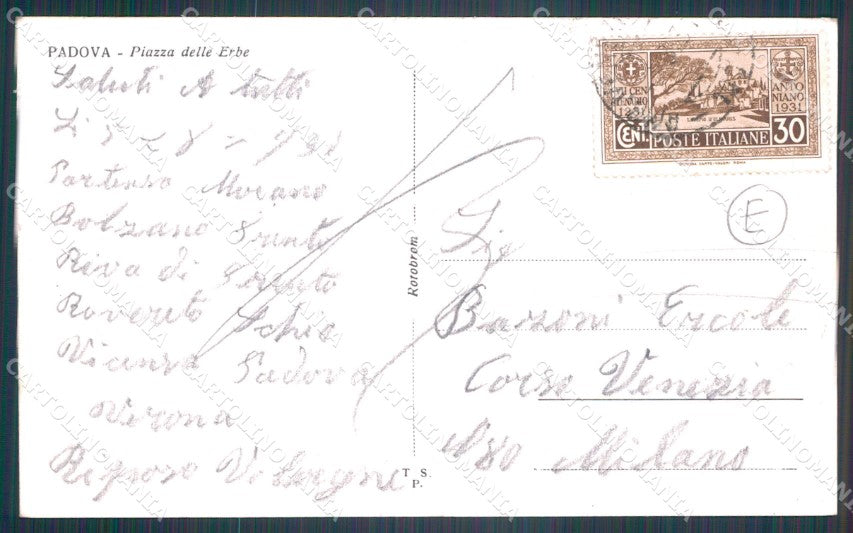 PADOVA - Piazza delle Erbe
Saluti A tutti
Li
Partenso Morano
Bolzano Trento
Riva di Trento
Rovereto Schio
Vicenza Padova
Verona
Rotobrom
T S.
P.
VII CEN
TENARIO
1231
ANTO
NIANO
1931
CENT. POSTE ITALIANE 30
E
Sig
Barzoni Ercole
Corso Venezia
N 80 Milano
CARTOLINOMANIA